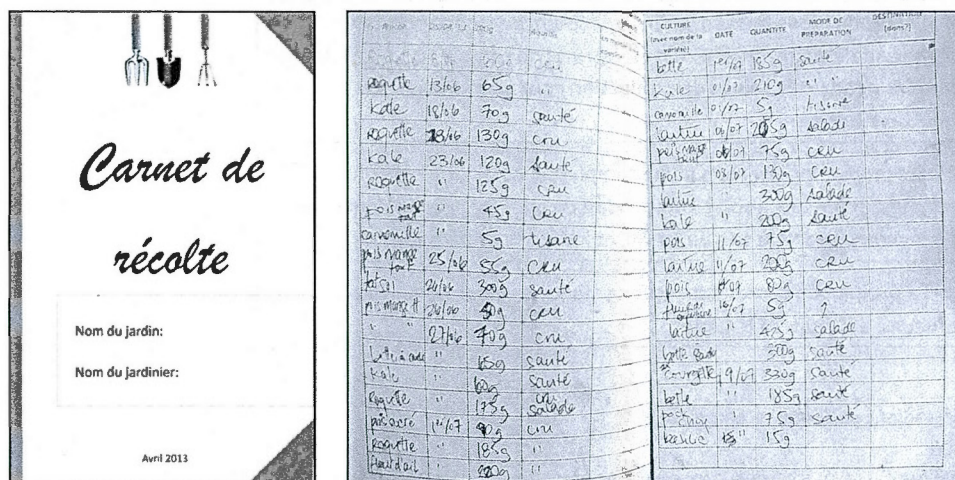 Carnet de
récolte
Nom du jardin:
Nom du jardinier:
Avril 2013
cru
roquette 13/06 65g "
Kale 18/06 70g sauté
roquette 18/06 130g cru
Kale 23/06 120g sauté
roquette " 125g cru
pois mange tout " 45g cru
camomille " 5g tisane
pois mange tout 25/06 55g cru
300g sauté
pois mange tt 26/06 cru
" 27/06 70g cru
" 65g sauté
Kale " 60g sauté
Roquette " 175g cru salade
pois sucré 1er/07 90g cru
roquette " 185g "
fleur d'ail " "
CULTURE
(avec nom de la
variété)
DATE
QUANTITE
MODE DE
PREPARATION
DESTINATION
(dons?)
bette 1er/07 185g sauté
Kale 01/07 210g " "
camomille 01/07 5g tisane
laitue 06/07 205g salade
pois mange tout 06/07 75g cru
pois 03/07 130g cru
laitue 300g salade
kale " 200g sauté
pois 11/07 75g cru
laitue 11/07 200g cru
pois 80g cru
5g ?
laitue " 425g salade
bette 300g sauté
courgette 19/07 330g sauté
bette " 185g sauté
pak choy " 75g sauté
15g